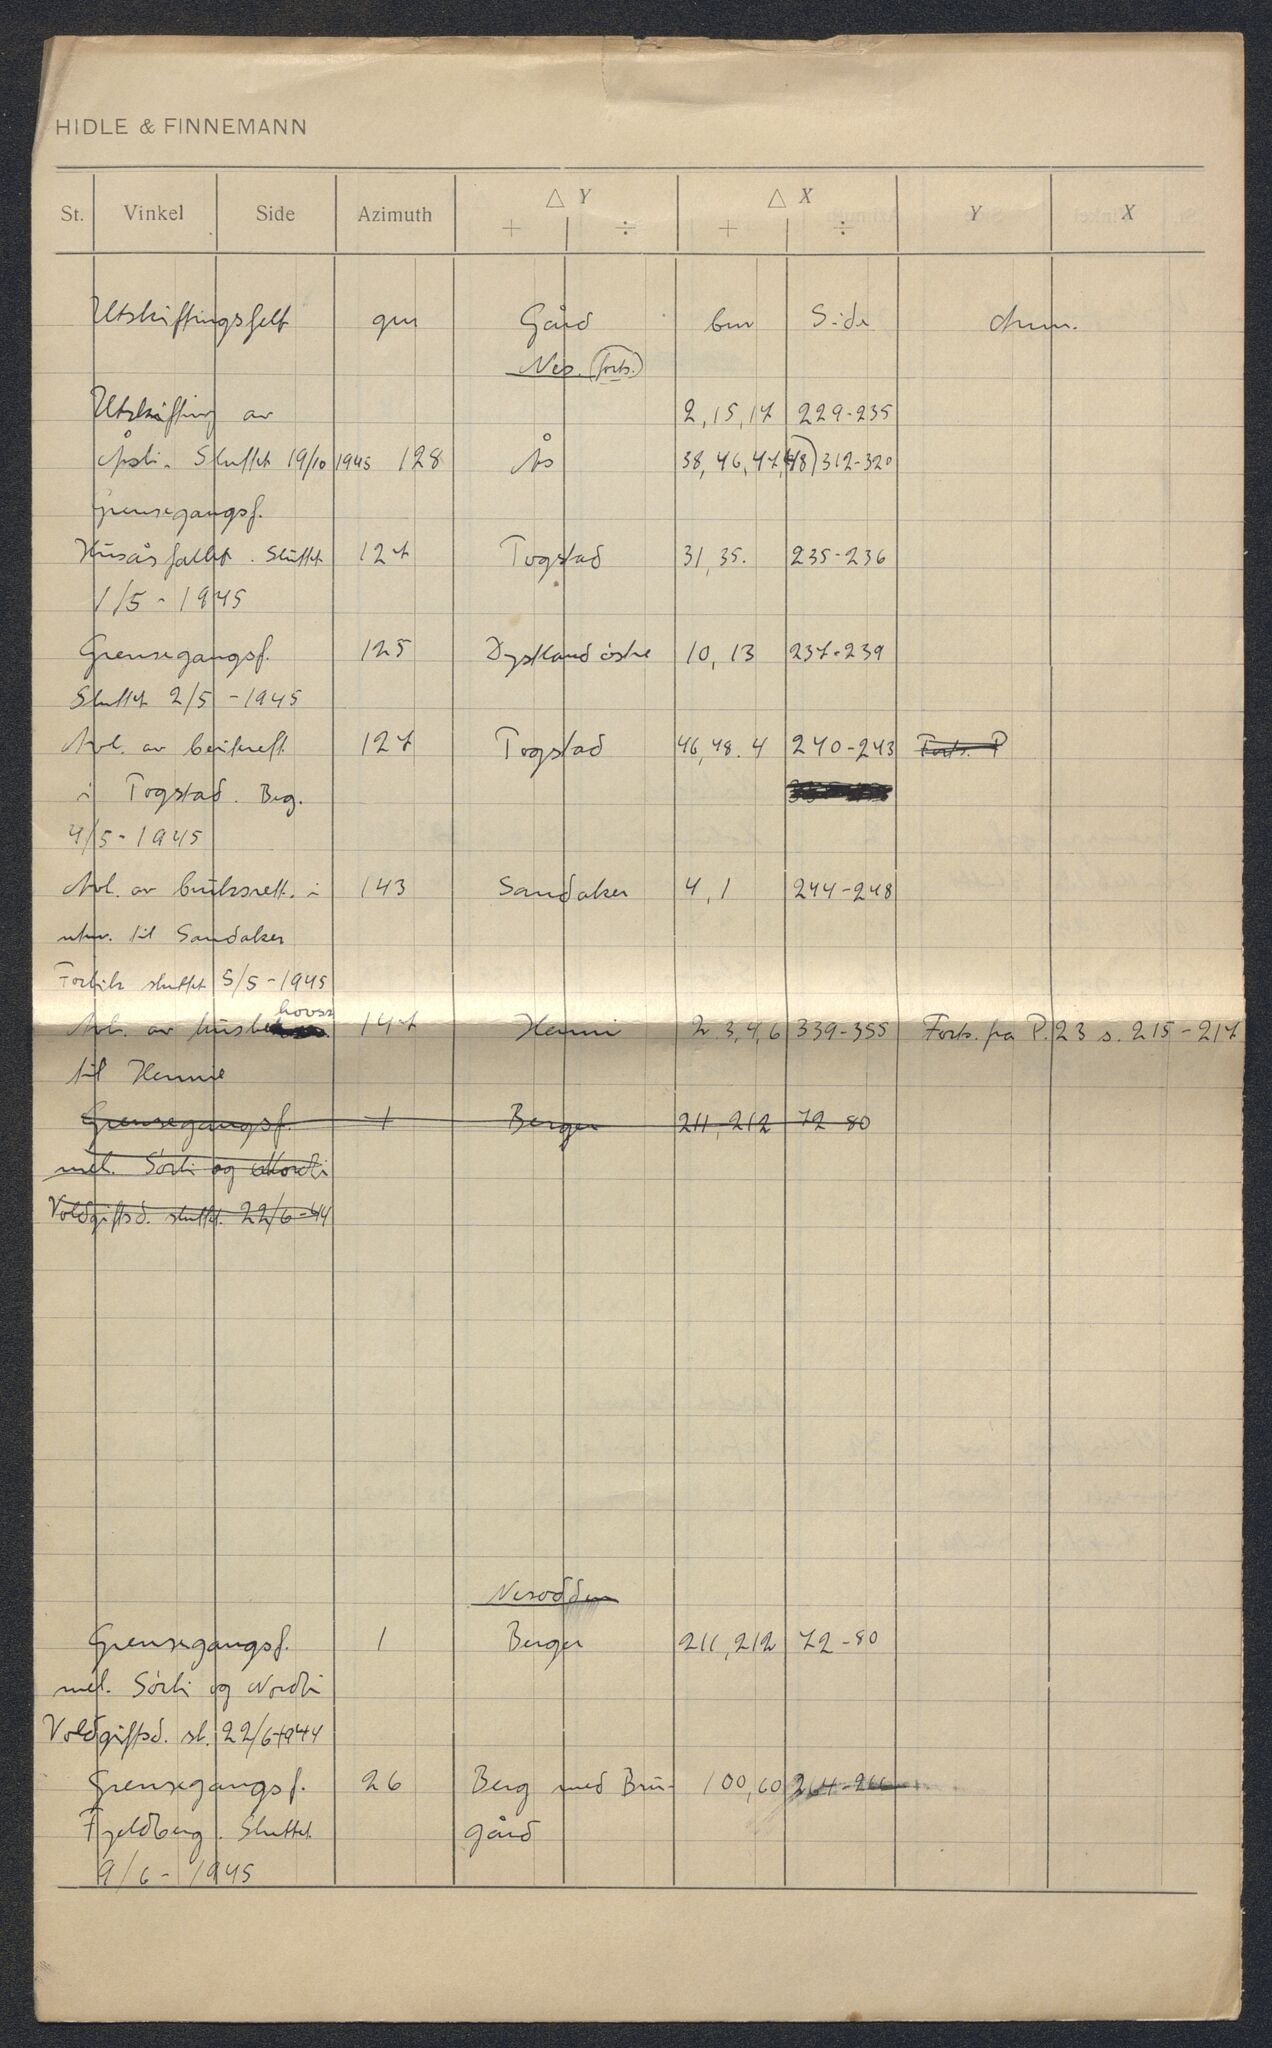 HIDLE & FINNEMANN
△ Y △ X
St. Vinkel Side Azimuth + ÷ + ÷ Y X
Utskiftingsfelt gnr Gård bnr Side Anm.
Nes. (forts.)
Utskifting av 2, 15, 17 229-235
Åsli. Sluttet 19/10 1945 128 Ås 38, 46, 47, 48) 312-320
Grensegangsf.
Husåsfallet. Sluttet 127 Togstad 31, 35. 235-236
1/5 - 1945
Grensegangsf. 125 Dystland östre 10, 13 237-239
Sluttet 2/5 - 1945
Avl. av beiterett 127 Togstad 46, 48. 4 240-243 Forts. P
i Togstad. Beg.
4/5 - 1945
Avl. av bruksrett. i 143 Sandaker 4, 1 244-248
utm. til Sandaker
Forlik sluttet 5/5 - 1945
hovsr
Avl. av husbe 147 Henni 2, 3, 4, 6 339-355 Forts. fra P. 23 s. 215-217
til Henni
Grensegangsf. 1 Berger 211, 212 72-80
mel. Sörli og Nordli
Voldgiftsd. sluttet. 22/6-44
Nesodden
Grensegangsf. 1 Berger 211, 212 72-80
mel. Sörli og Nordli
Voldgiftsd. sl. 22/6-1944
Grensegangsf. 26 Berg med Bru- 100, 60 264-266
Fjeldberg. Sluttet gård
9/6 - 1945